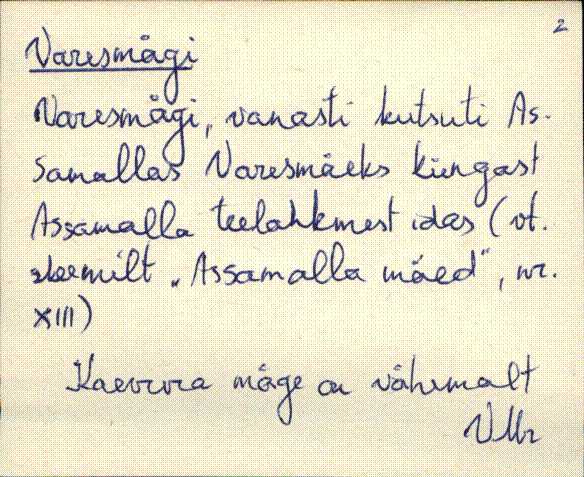 2
Varesmägi
Varesmägi, vanasti kutsuti As-
samallas Varesmäeks küngast
Assamalla teelahkmest idas (vt.
skeemilt „Assamalla mäed“, nr.
XIII)
Kaevura mäge on vähemalt